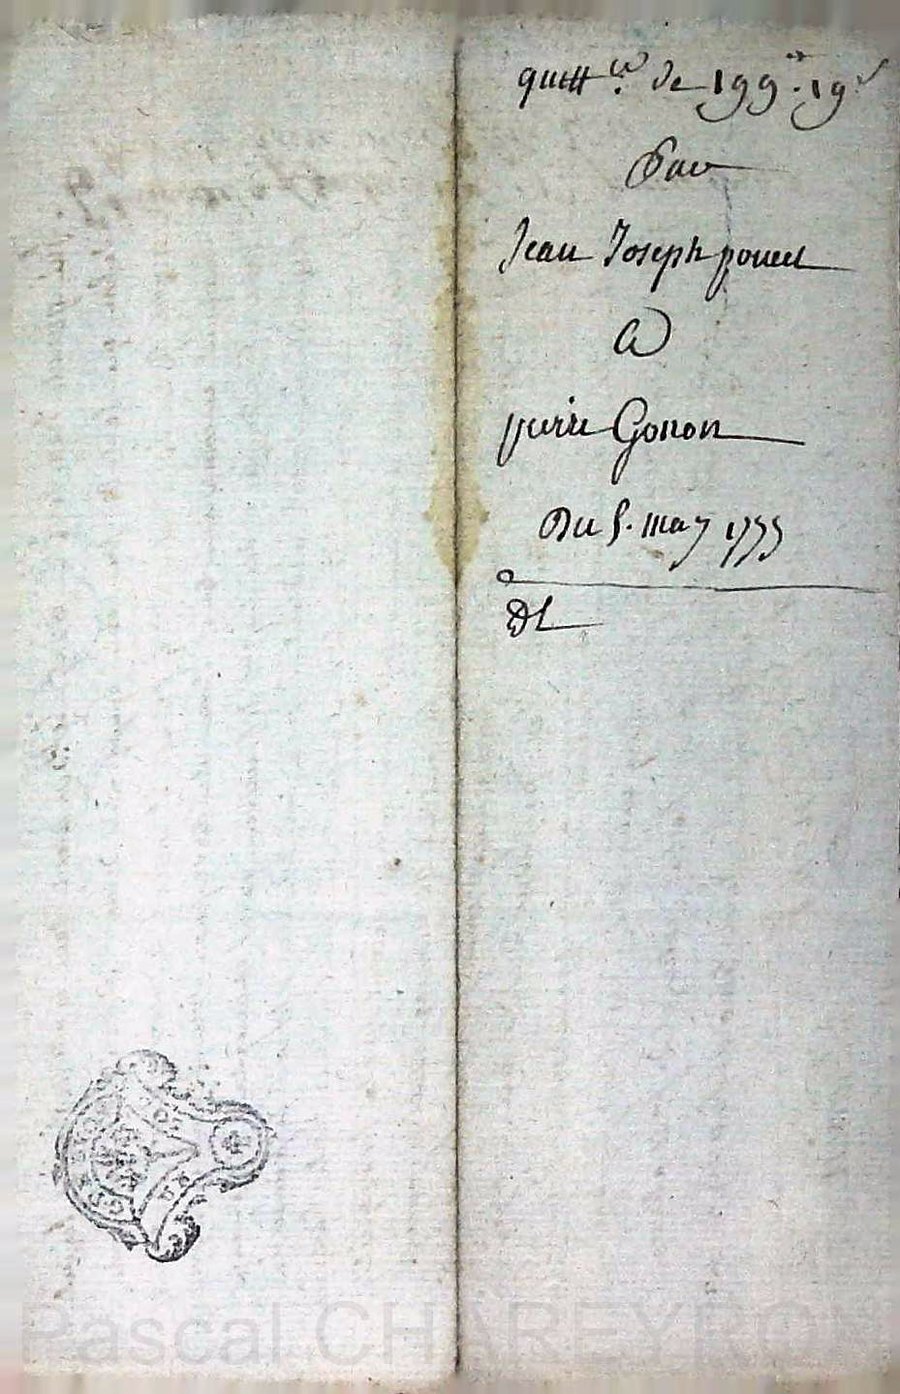 quitt.ce de 199 ₶ 19 s
Par
Jean Joseph
A
pierre Gonon
Du 5. may 1775
DL
Pascal CHAREYRON